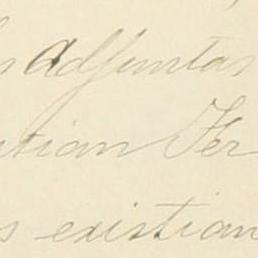 s adjuntas
tian Fer
s existian